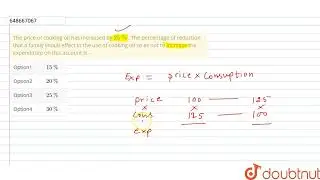 648667067
The price or cooking oil has increased by 25 %. The percentage of reduction
that a family should effect in the use of cooking oil so as not to increase the
expenditure on this account is
Option1 15 %
Option2 20 %
Option3 25 %
Option4 30 %
Exp = price × Consuption
price 100 — 125
× × ×
cons 125 — 100
exp
doubtnut